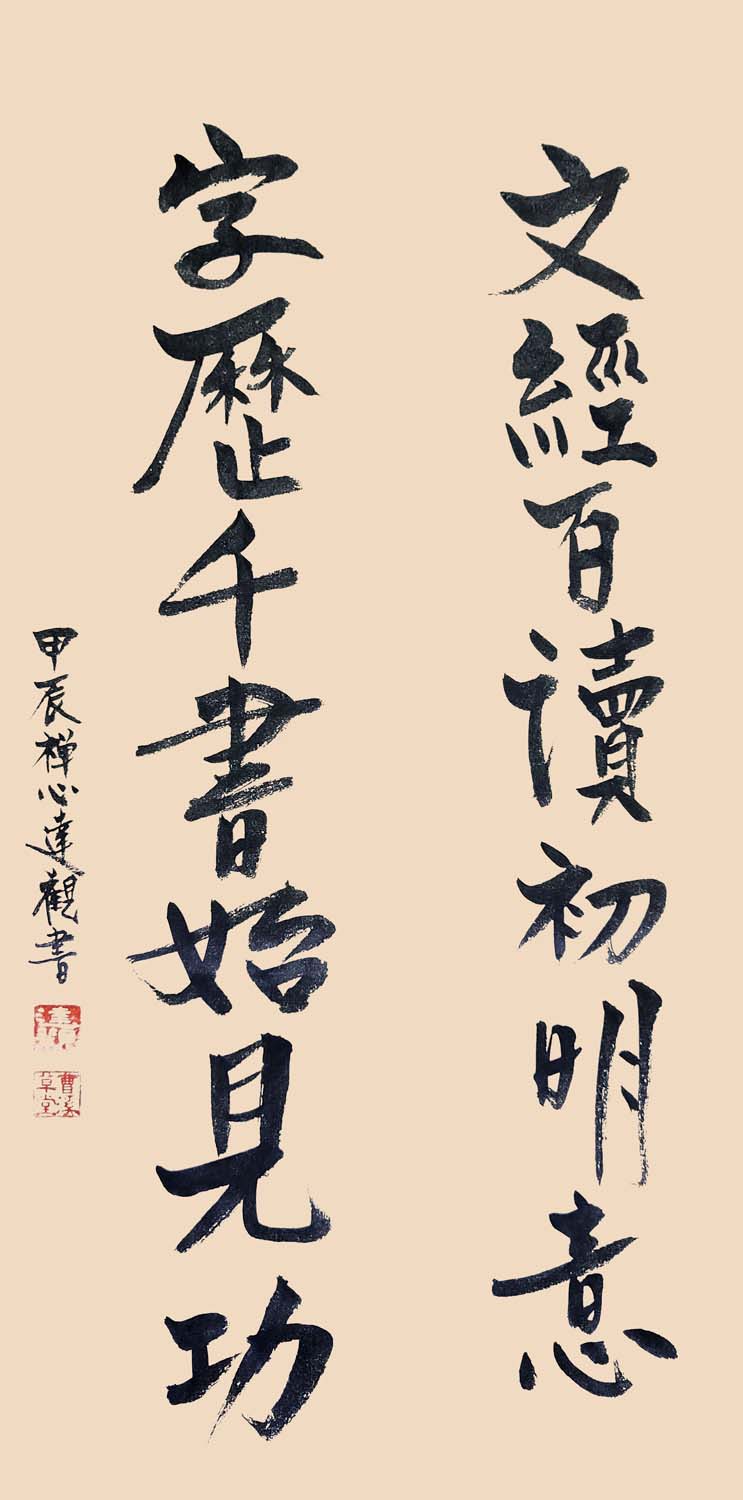 文經百讀初明意
字歷千書始見功
甲辰禪心達觀書